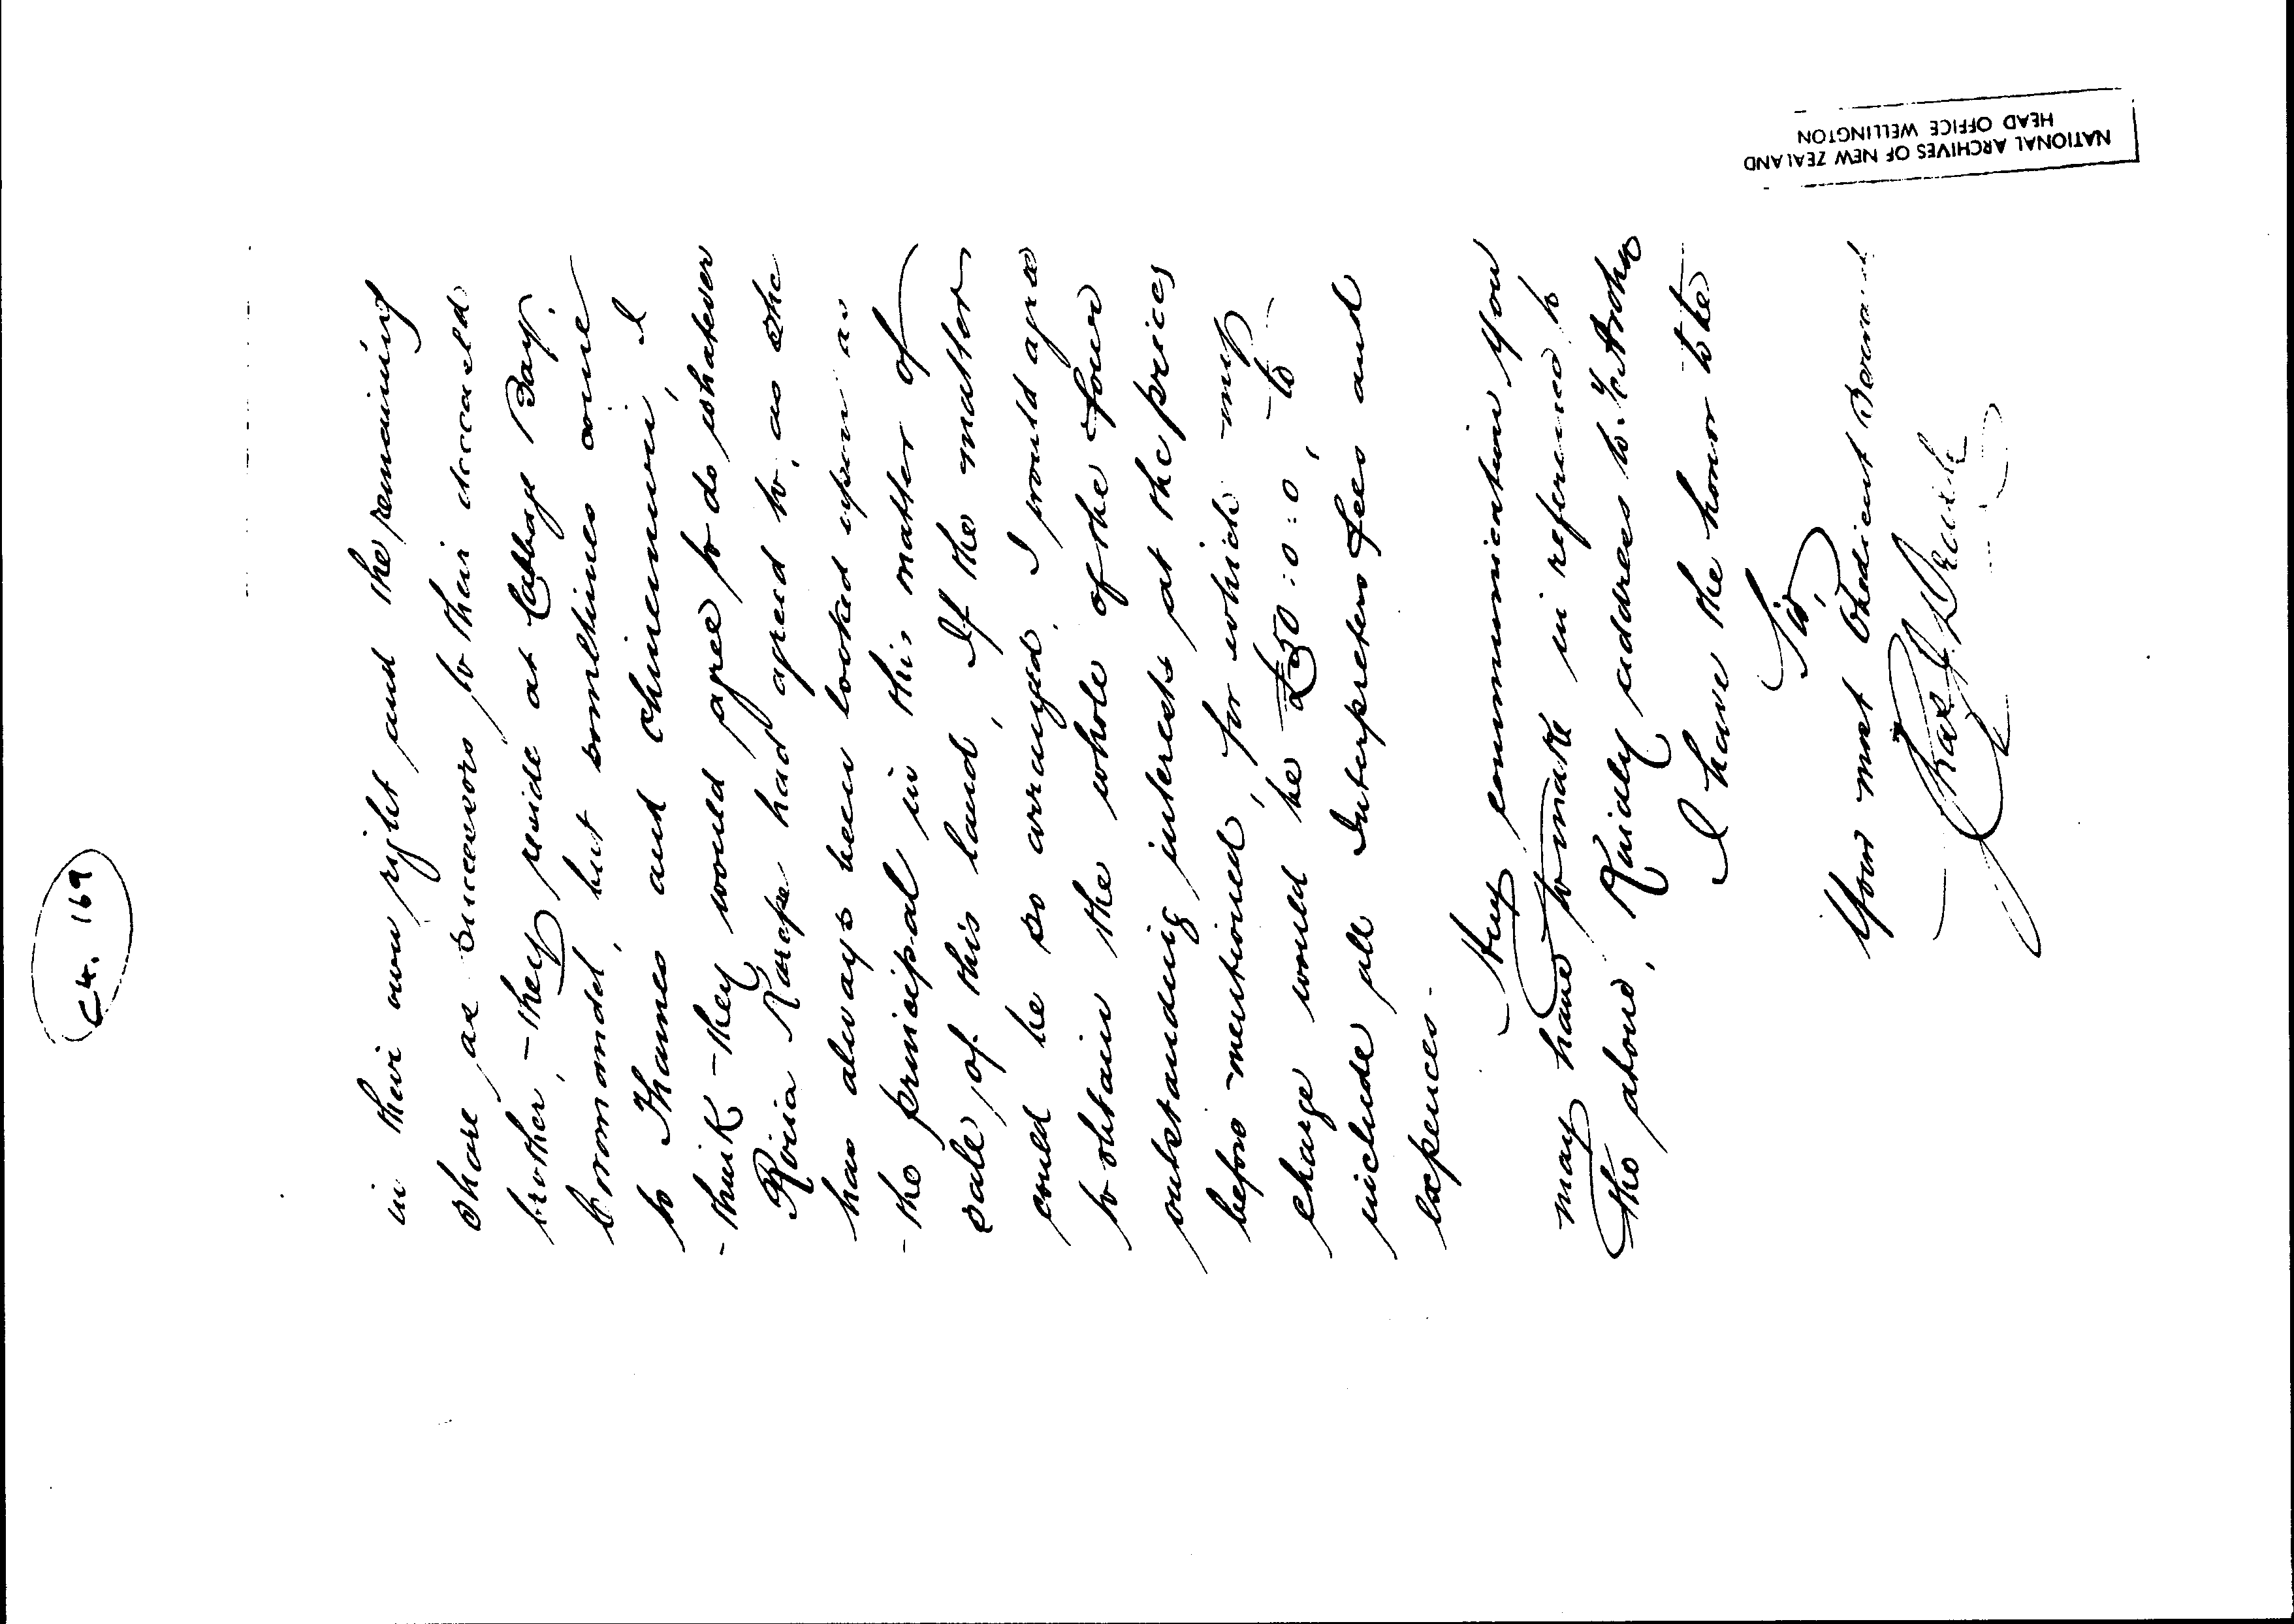 C4. 169
in their own right and the remaining
share as successors to their deceased
brother, they reside at Cabbage Bay.
Coromandel, but sometimes come
to Thames and Ohinemuri, I
think they would agree to do whatever
had agreed to, as she
has always been looked upon as
the principal in this matter of
sale of this land, If the matter
could be so arranged. I would agree
to obtain the whole of the four
outstanding interests at the prices
before mentioned, for which my
charge would be £50:0:0, to
include all Interpreters fees and
expences.
Any communication you
may have to make in reference to
the above, Kindly address to Te Aroha
I have the honor to be
Sir,
Your most Obedient Servant
NATIONAL ARCHIVES OF NEW ZEALAND
HEAD OFFICE WELLINGTON